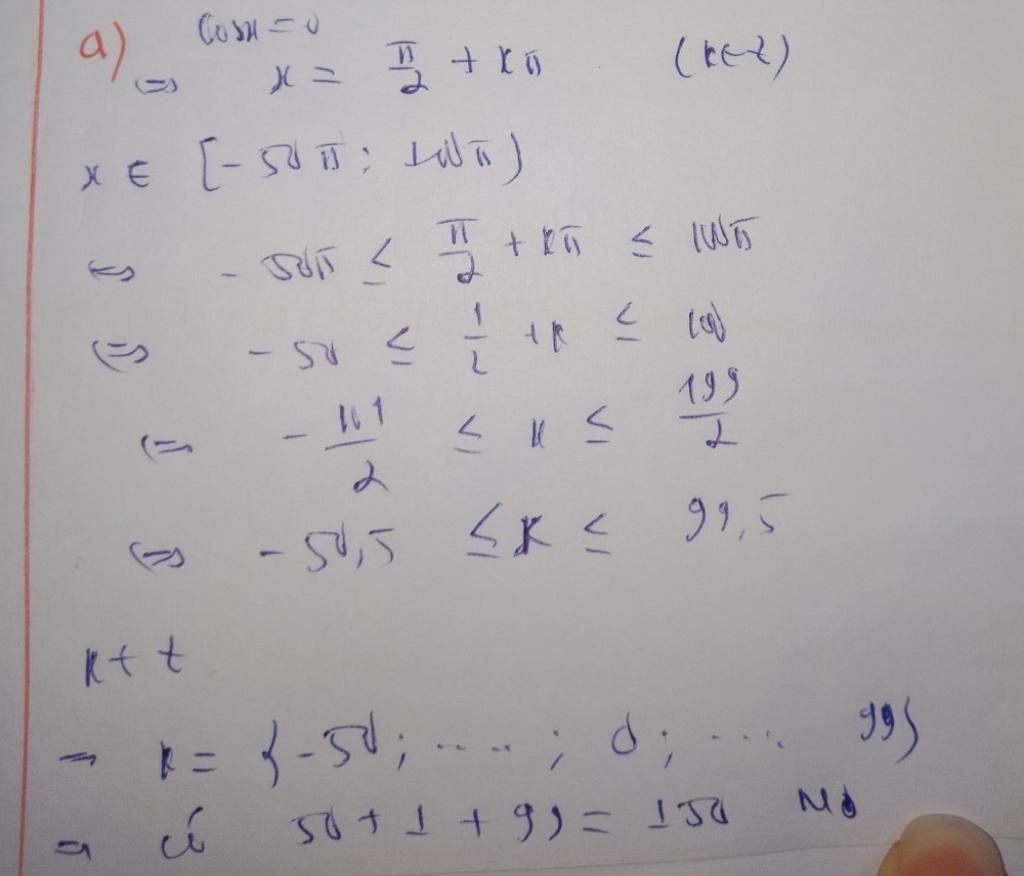 a) cosx = 0
⇔ x = π/2 + kπ (k∈Z)
x ∈ [-50π; 100π)
⇔ -50π ≤ π/2 + kπ ≤ 100π
⇔ -50 ≤ 1/2 + k ≤ 100
⇔ -101/2 ≤ k ≤ 199/2
⇔ -50,5 ≤ k ≤ 99,5
k ∈ Z
⇒ k = {-50; .....; 0; .... 99}
⇒ có 50 + 1 + 99 = 150 No